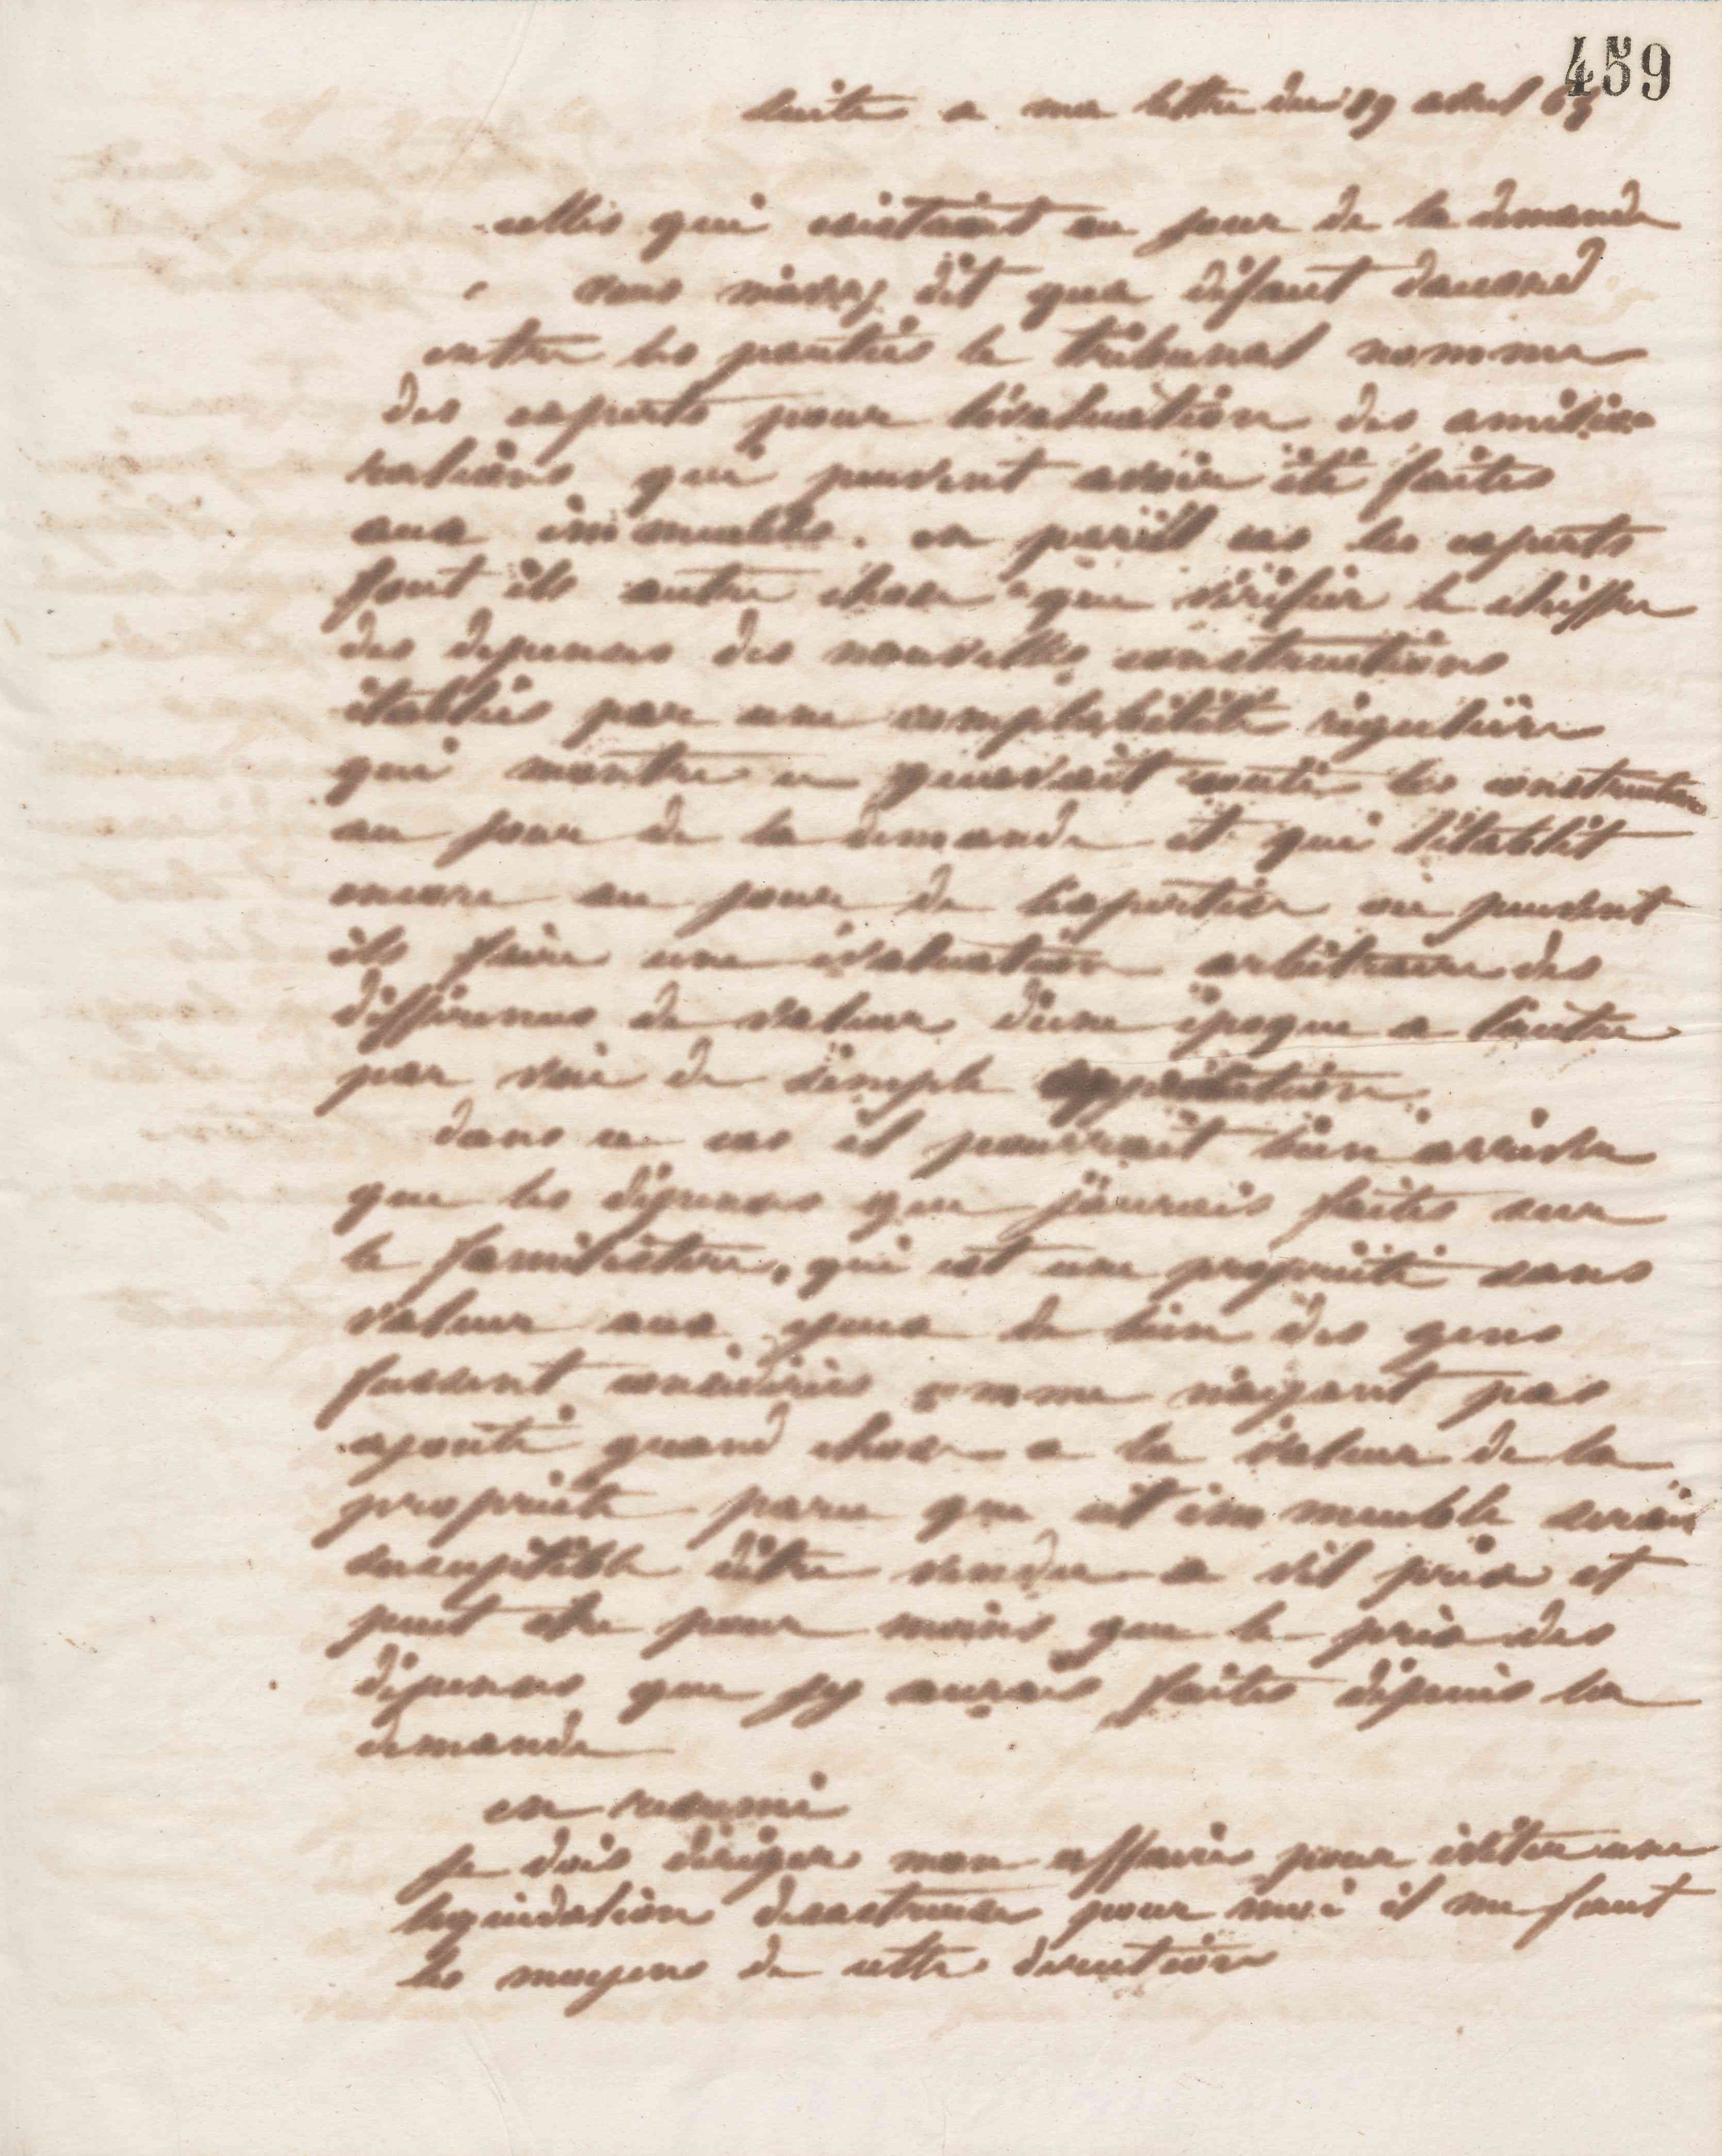 459
suite a ma lettre du 19 avril 65
celles qui existaient au jour de la demande
vous m'avez dit qua défaut daccord
entre les parties le tribunal nomme
des experts pour l'évaluation des amélio
rations qui peuvent avoir été faites
aux immeubles. en pareil cas les experts
font ils autre chose que vérifier le chiffre
des depenses des nouvelles constructions
établies par une comptabilité régulière
qui montre ce quavait couté les constructions
au jour de la demande et qui l'établit
encore au jour de l'expertise ou peuvent
ils faire une évaluation arbitraire des
différences de valeurs d'une époque a l'autre
par voie de simple appréciation.
dans ce cas il pourrait bien arriver
que les dépenses que j'aurais faites sur
le familistère, qui est une propriété sans
valeur aux yeux de bien des gens
fussent considérées comme n'ayant pas
ajouté grand chose a la valeur de la
propriété parce que cet immeuble serait
susceptible d'être vendu a vil prix et
peut etre pour moins que le prix des
dépenses que j'y aurais faites dépuis la
demande
en resumé
je dois diriger mon affaire pour éviter une
liquidation desastreuse pour moi il me faut
les moyens de cette direction